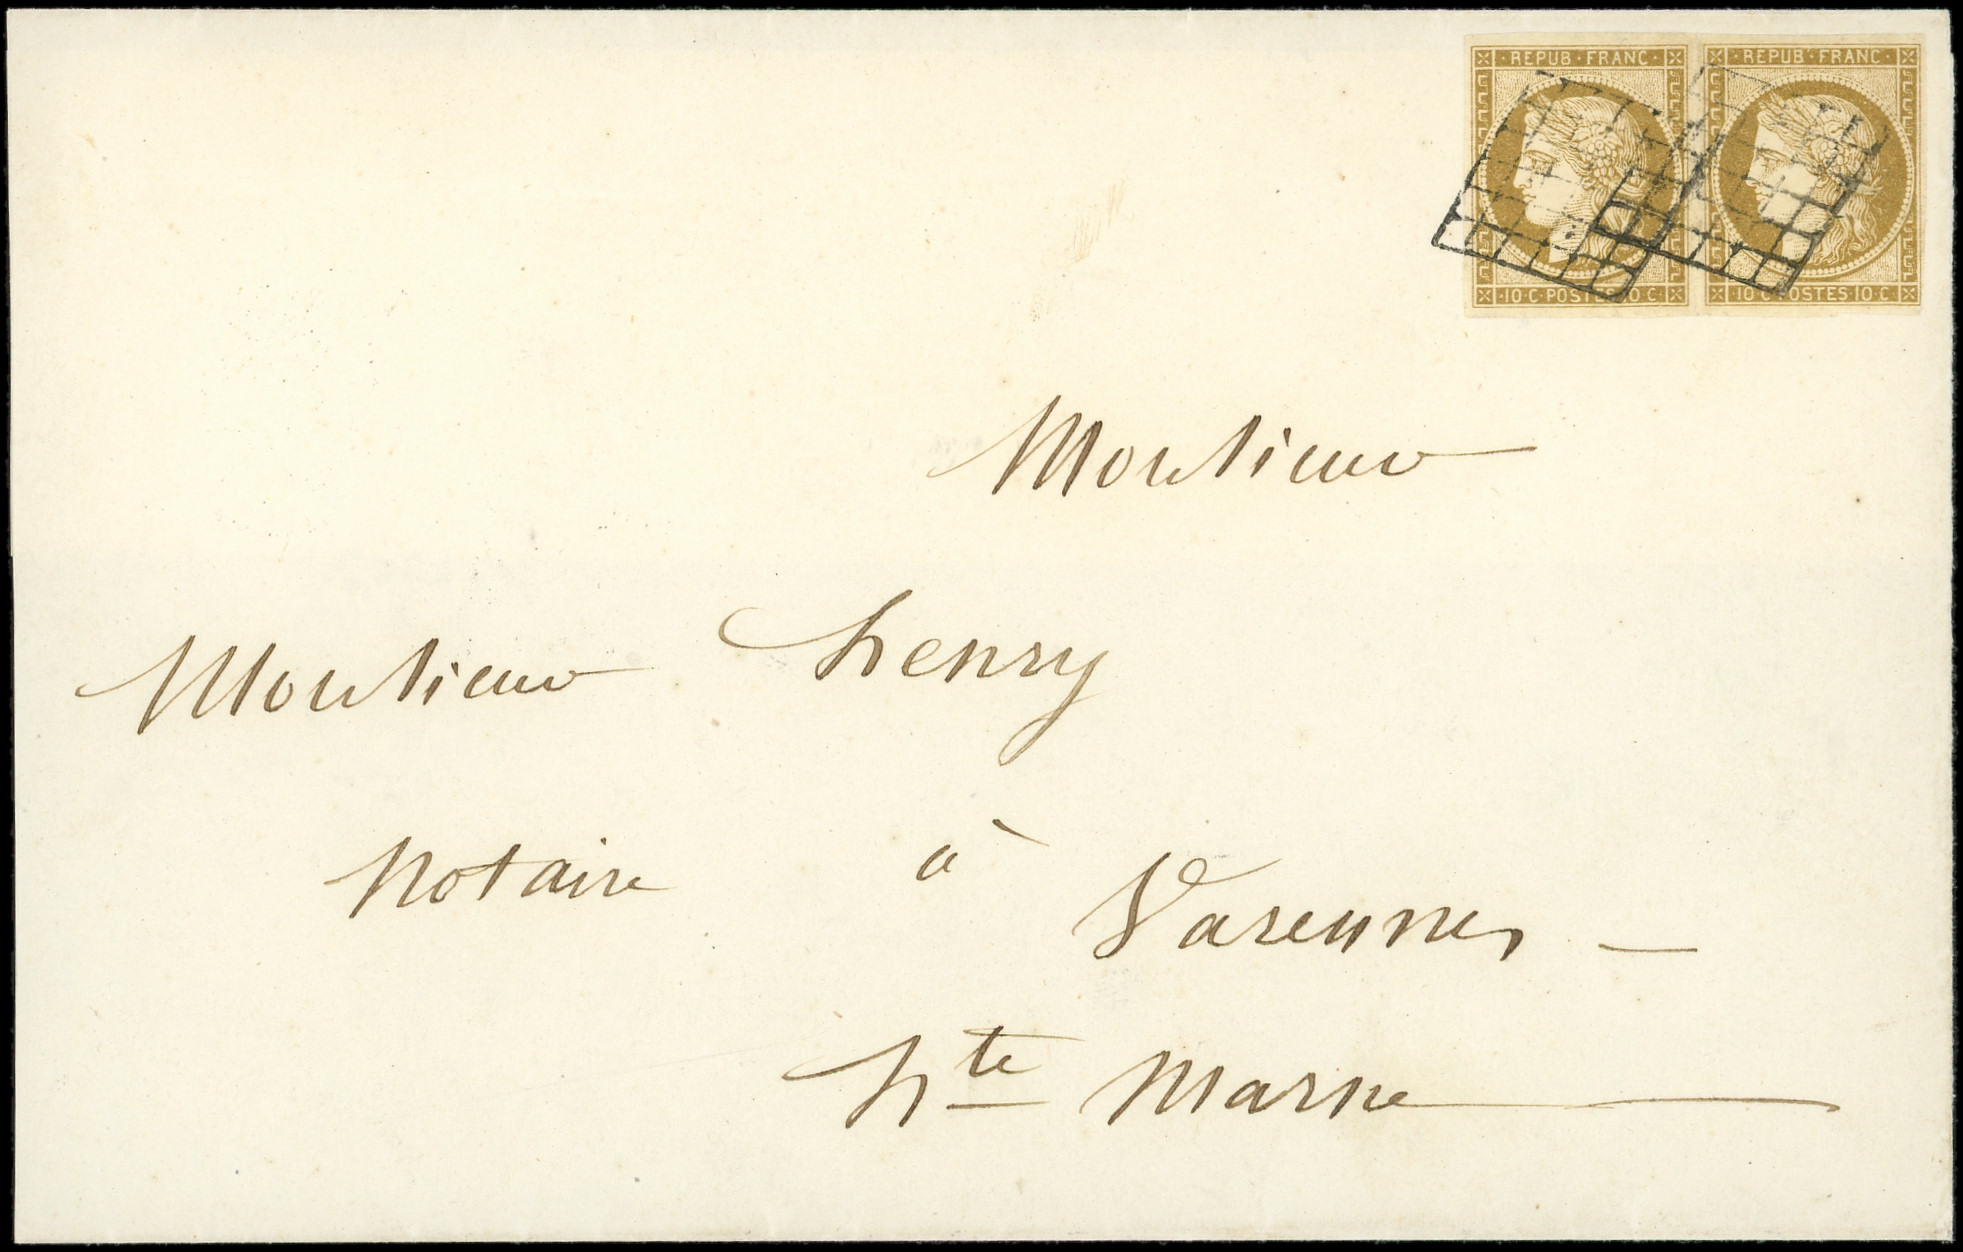 REPUB·FRANC· REPUB·FRANC·
·10·C·POSTES·10·C· ·10·C·POSTES·10·C
Monsieur
Monsieur henry
Notaire à Varennes —
hte Marne